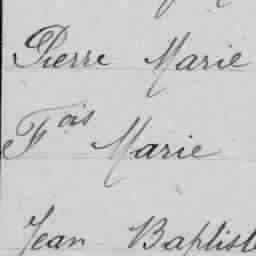 Pierre Marie
Fois Marie
Jean Baptist